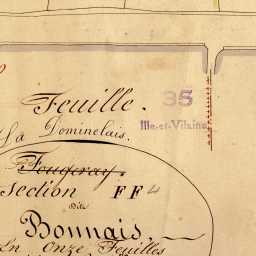 Feuille.
35
Ille-et-Vilaine
La Dominelais.
Fougeray.
Section FF4
dite
Bonnais,
En Onze Feuilles